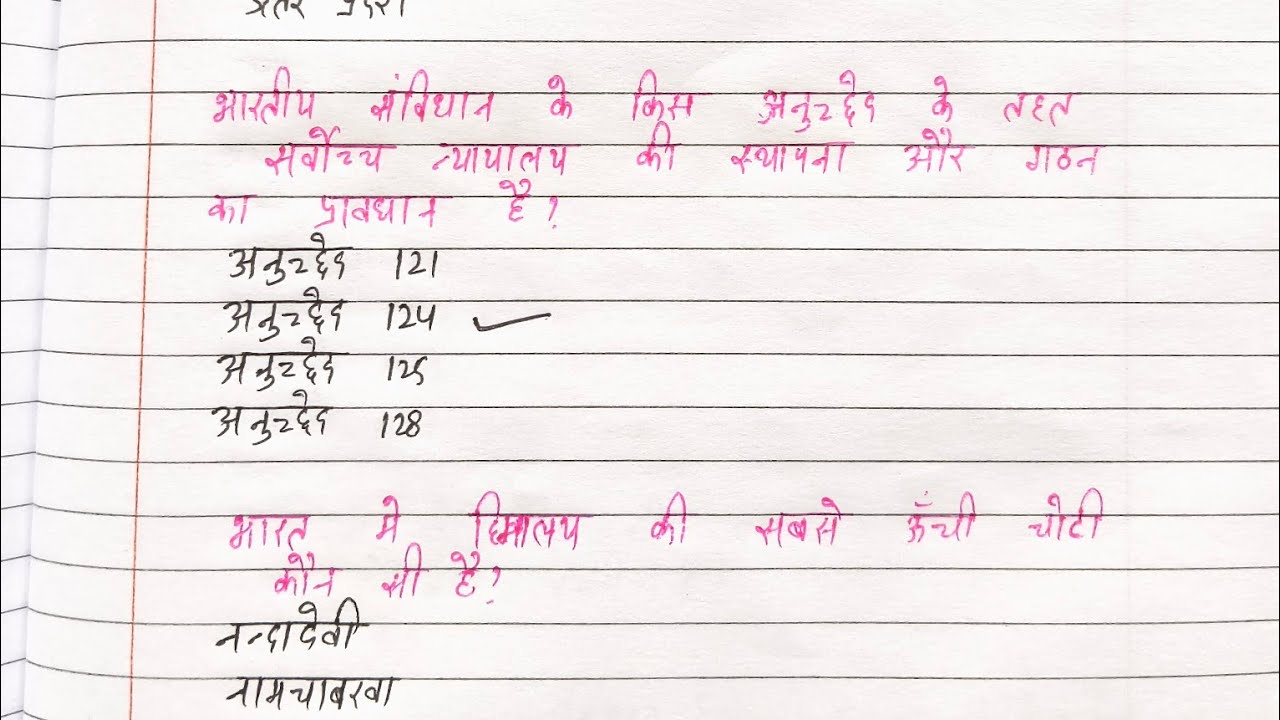 प्रदेश
भारतीय संविधान के किस अनुच्छेद के तहत
सर्वोच्च न्यायालय की स्थापना और गठन
का प्रावधान है?
अनुच्छेद 121
अनुच्छेद 124 ✓
अनुच्छेद 125
अनुच्छेद 128
भारत मे हिमालय की सबसे ऊँची चोटी
कौन सी है?
नन्दादेवी
नामचाबरवा